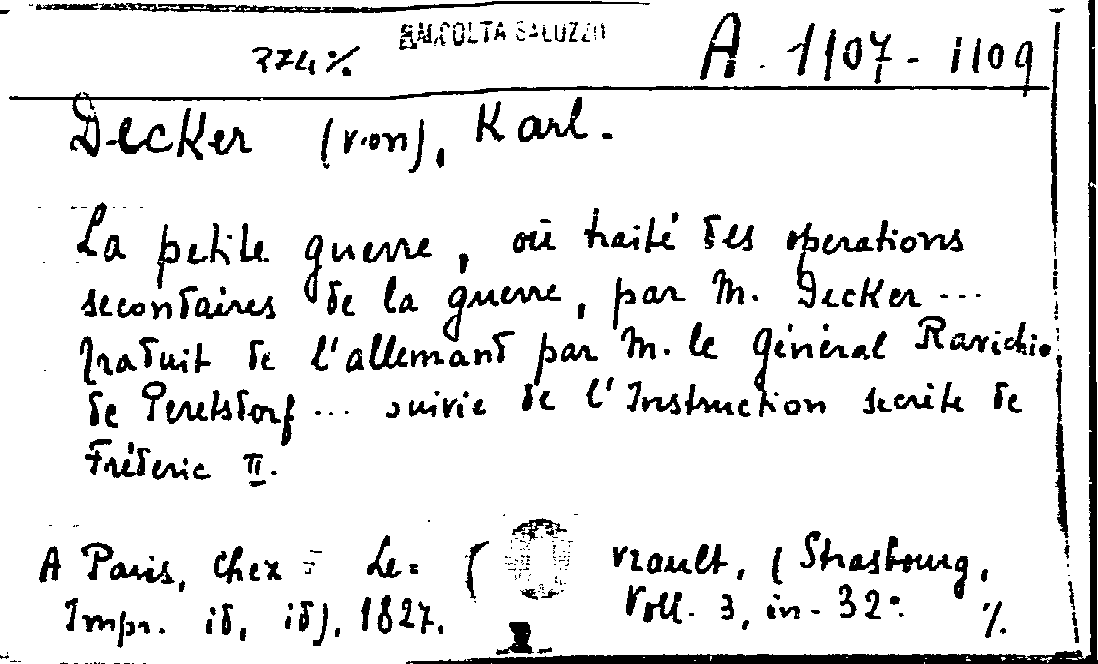 RACCOLTA SALUZZO
374 %
A. 1107-1109
Decker (von), Karl.
La petite guerre, où traité des operations
secondaires de la guerre, par M. Decker...
traduit de l'allemand par M. le général Ravichio
de Peretsdorf... suivie de l'Instruction secrète de
Fréderic II.
A Paris, chez = Le= ( vrault, (Strasbourg,
Impr. id, id), 1827. Voll. 3, in-32°. %